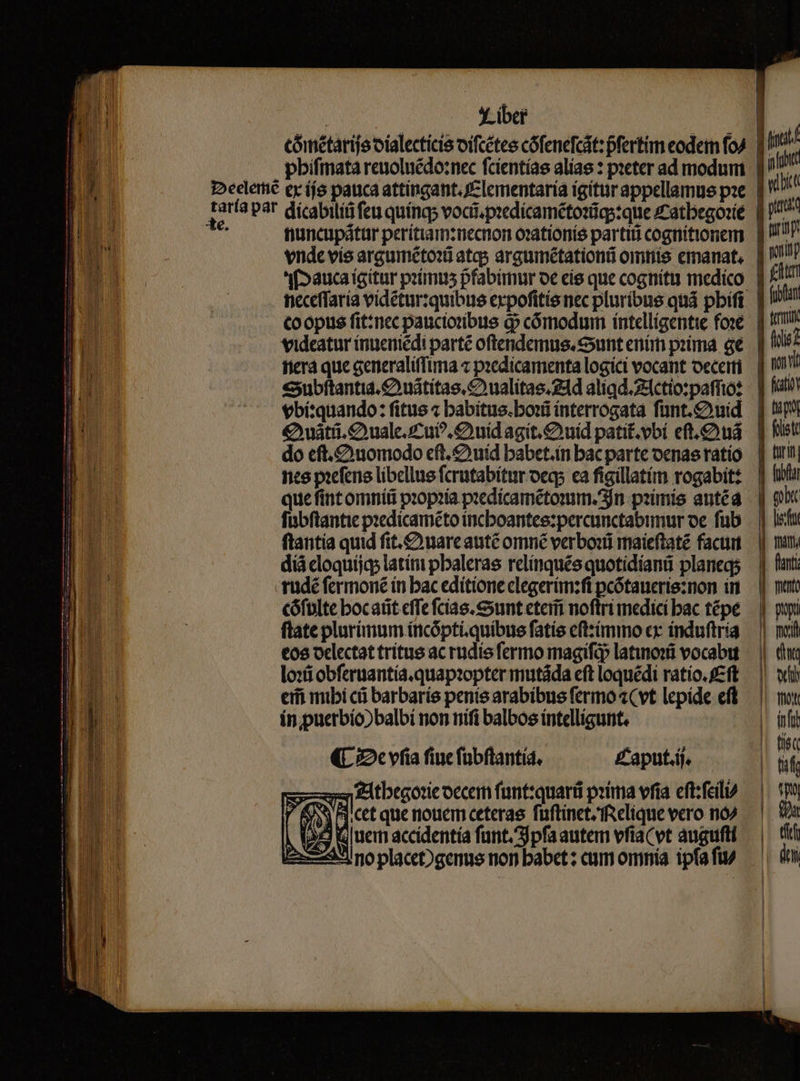 Liber
cõmẽtarijs dialecticis diſcẽtes cõſeneſcãt: p̃ſertim eodem ſo⸗
phiſmata reuoluẽdo: nec ſcientias alias: preter ad modum
ex ijs pauca attingant. Elementaria igitur appellamus pre
dicabiliũ ſeu quinqꝫ vocũ. predicamẽtorũqꝫ: que Cathegorie
nuncupãtur peritiam: necnon orationis partiũ cognitionem
vnde vis argumẽtorũ atqꝫ argumẽtationũ omnis emanat.
Pauca igitur primuꝫ p̃fabimur de eis que cognitu medico
neceſſaria vidẽtur: quibus expoſitis nec pluribus quã phiſi
co opus ſit: nec paucioribus ꝙ̃ cõmodum intelligentie fore
videatur inueniẽdi partẽ oſtendemus. Sunt enim prima ge
nera que generaliſſima ⁊ predicamenta logici vocant decem
Subſtantia. Quãtitas. Qualitas. Ad aliqd. Actio: paſſio:
vbi: quando: ſitus ⁊ habitus. horũ interrogata ſunt. Quid
Quãtũ. Quale. Cuiꝰ. Quid agit. Quid patit̃. vbi eſt. Quã
do eſt. Quomodo eſt. Quid habet. in hac parte denas ratio
nes preſens libellus ſcrutabitur deqꝫ ea ſigillatim rogabit:
que ſint omniũ propria predicamẽtorum. In primis autẽ a
ſubſtantie predicamẽto inchoantes: percunctabimur de ſub
ſtantia quid ſit. Quare autẽ omnẽ verborũ maieſtatẽ facun
diã eloquijqꝫ latini phaleras relinquẽs quotidianũ planeqꝫ
rudẽ ſermonẽ in hac editione elegerim: ſi pcõtaueris: non in
cõſulte hoc aũt eſſe ſcias. Sunt etem̃ noſtri medici hac tẽpe
ſtate plurimum incõpti. quibus ſatis eſt: immo ex induſtria
eos delectat tritus ac rudis ſermo magiſꝙ̃ latinorũ vocabu
lorũ obſeruantia. quapropter mutãda eſt loquẽdi ratio. Eſt
em̃ mihi cũ barbaris penis arabibus ſermo ⁊ (vt lepide eſt
in ꝓuerbio) balbi non niſi balbos intelligunt.
Deelemẽ
taria par
te.
¶ De vſia ſiue ſubſtantia. Caput.ij.
Athegorie decem ſunt: quarũ prima vſia eſt: ſcili⸗
cet que nouem ceteras ſuſtinet. Relique vero no⸗
uem accidentia ſunt. Ipſa autem vſia (vt auguſti
no placet) genus non habet: cum omnia ipſa ſu⸗